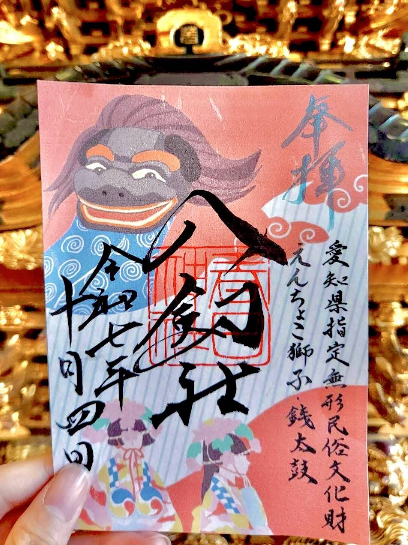 奉拝
愛知県指定無形民俗文化財
えんちょこ獅子・銭太鼓
八剱社
令和七年
十月四日